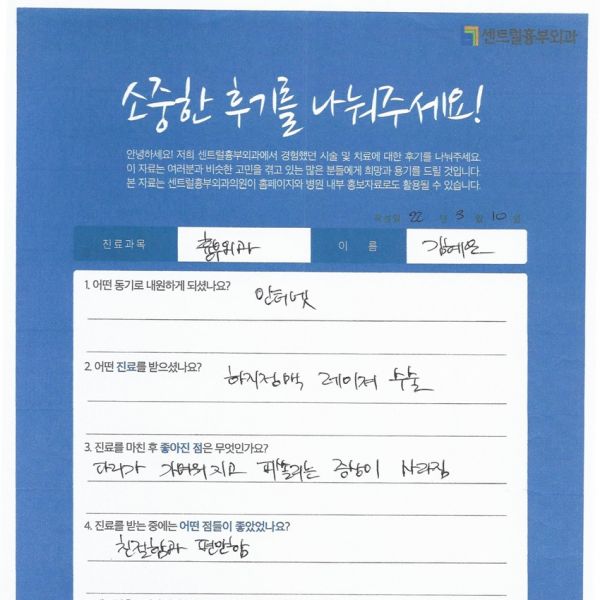 센트럴흉부외과
소중한 후기를 나눠주세요!
안녕하세요! 저희 센트럴흉부외과에서 경험했던 시술 및 치료에 대한 후기를 나눠주세요.
이 자료는 여러분과 비슷한 고민을 겪고 있는 많은 분들에게 희망과 용기를 드릴 것입니다.
본 자료는 센트럴흉부외과의원이 홈페이지와 병원 내부 홍보자료로도 활용될 수 있습니다.
작성일 22 년 3 월 10 일
진료과목 흉부외과 이 름 김예은
1. 어떤 동기로 내원하게 되셨나요?
인터넷
2. 어떤 진료를 받으셨나요?
하지정맥 레이져 수술
3. 진료를 마친 후 좋아진 점은 무엇인가요?
다리가 가벼워지고 증상이 사라짐
4. 진료를 받는 중에는 어떤 점들이 좋았었나요?
친절함과 편안함